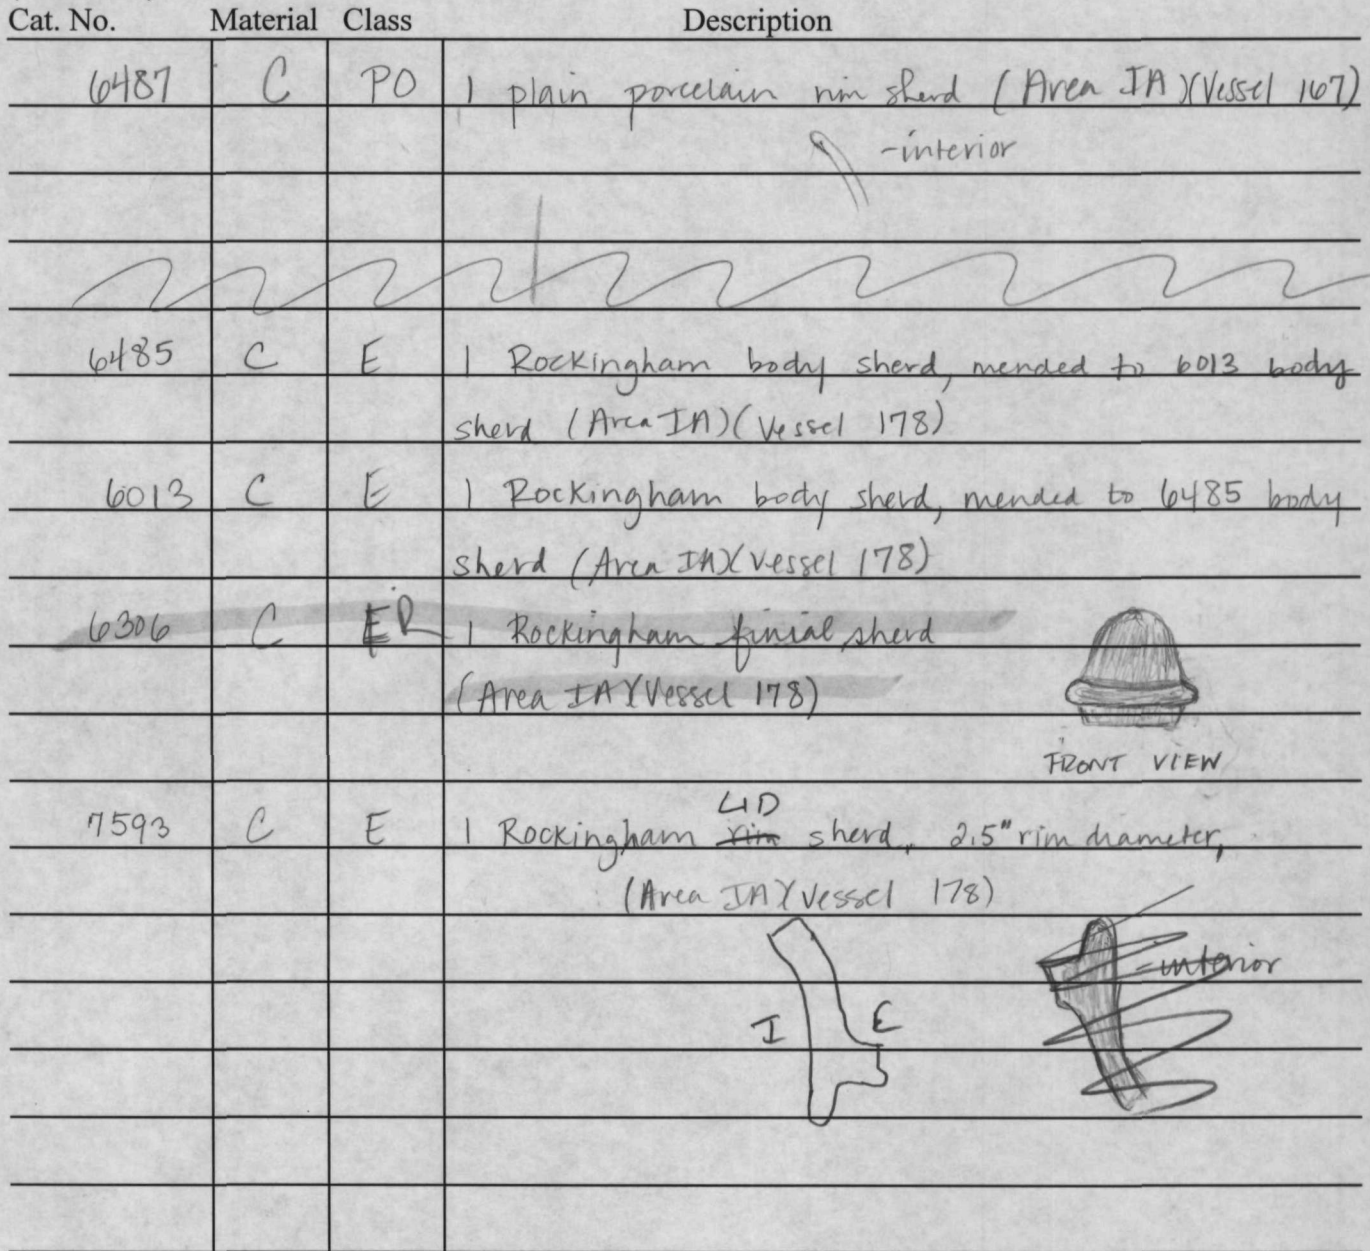 Cat. No. Material Class Description
6487 C PO 1 plain porcelain rim sherd (Area IA)(Vessel 167)
-interior
6485 C E 1 Rockingham body sherd, mended to 6013 body
sherd (Area IA)(Vessel 178)
6013 C E 1 Rockingham body sherd, mended to 6485 body
sherd (Area IA)(Vessel 178)
6306 C ER 1 Rockingham finial sherd
(Area IA)(Vessel 178)
FRONT VIEW
LID
7593 C E 1 Rockingham rim sherd, 2.5" rim diameter,
(Area IA)(Vessel 178)
-interior
I E